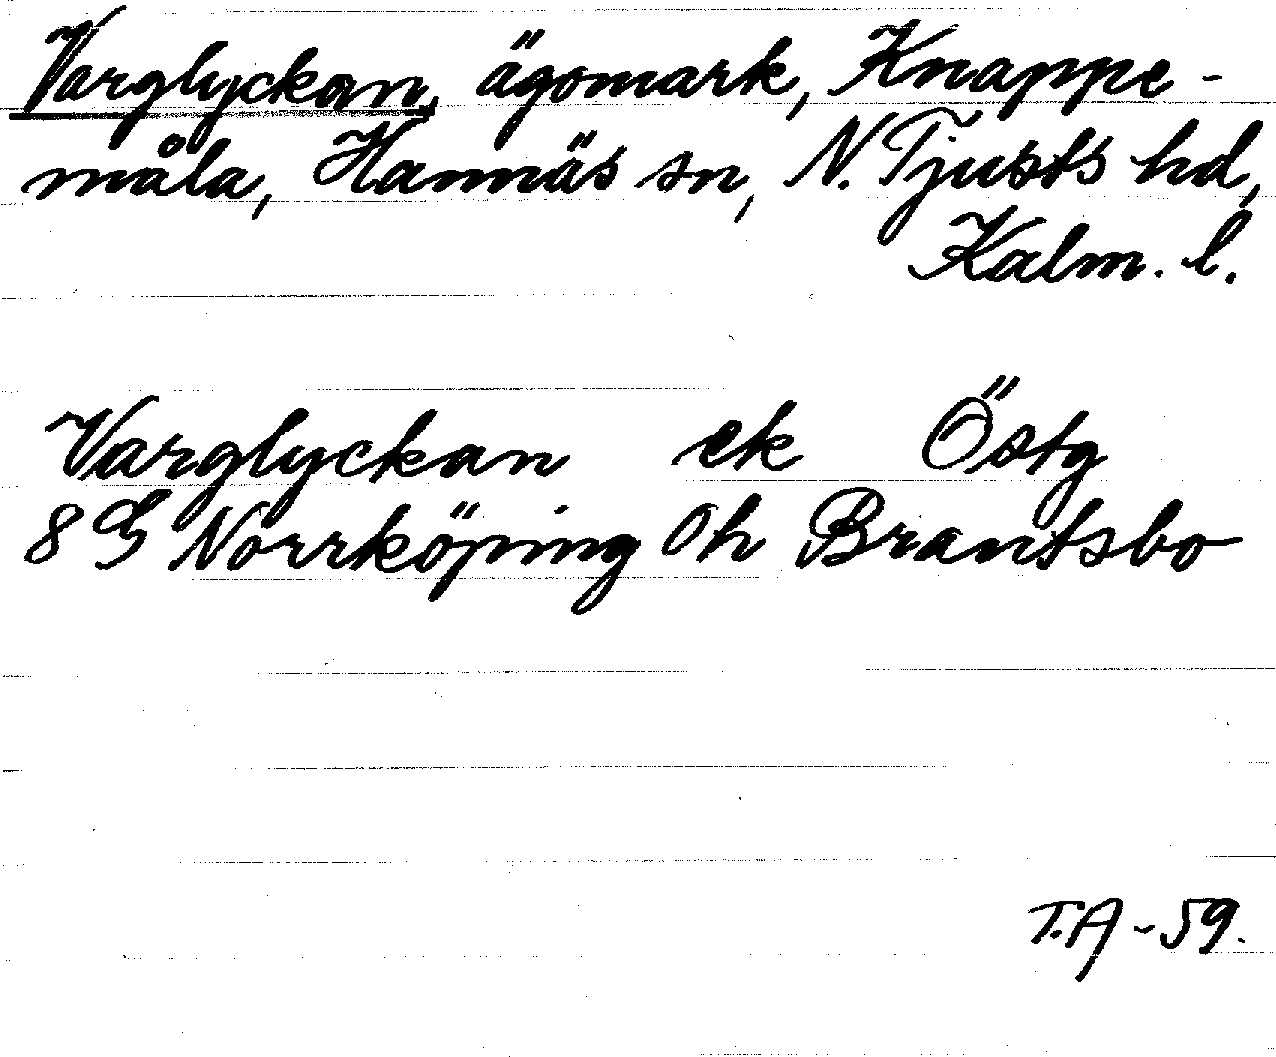 Varglyckan, ägomark, Knappe-
måla, Hannäs sn, N. Tjusts hd,
Kalm. l.
Varglyckan ek Östg
8 G Norrköping 0h Brantsbo
T.A -59.